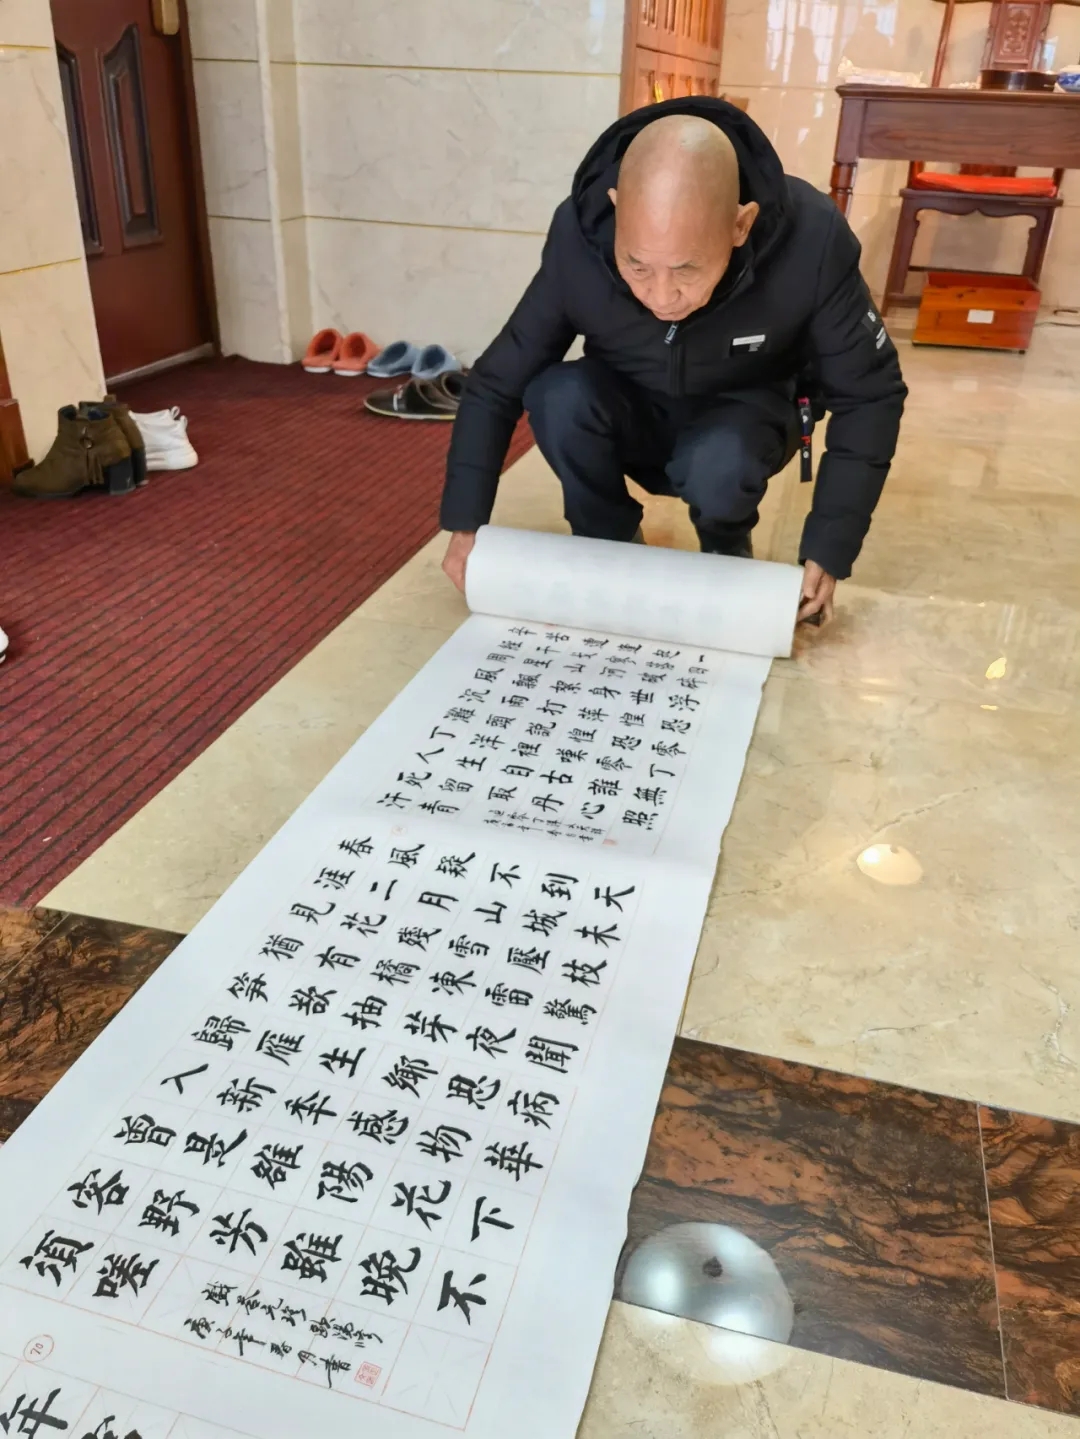 辛苦遭逢起一
經干戈寥落四
周星山河破碎
風飄絮身世浮
沉雨打萍惶恐
灘頭說惶恐零
丁洋裡嘆零丁
人生自古誰無
死留取丹心照
汗青
春風疑不到天
涯二月山城未
見花殘雪壓枝
猶有橘凍雷驚
筍欲抽芽夜聞
歸雁生鄉思病
入新秊感物華
曾昰雒陽花下
客野芳雖晚不
須嗟
戲答元珍 歐陽修
庚子年春月書
70